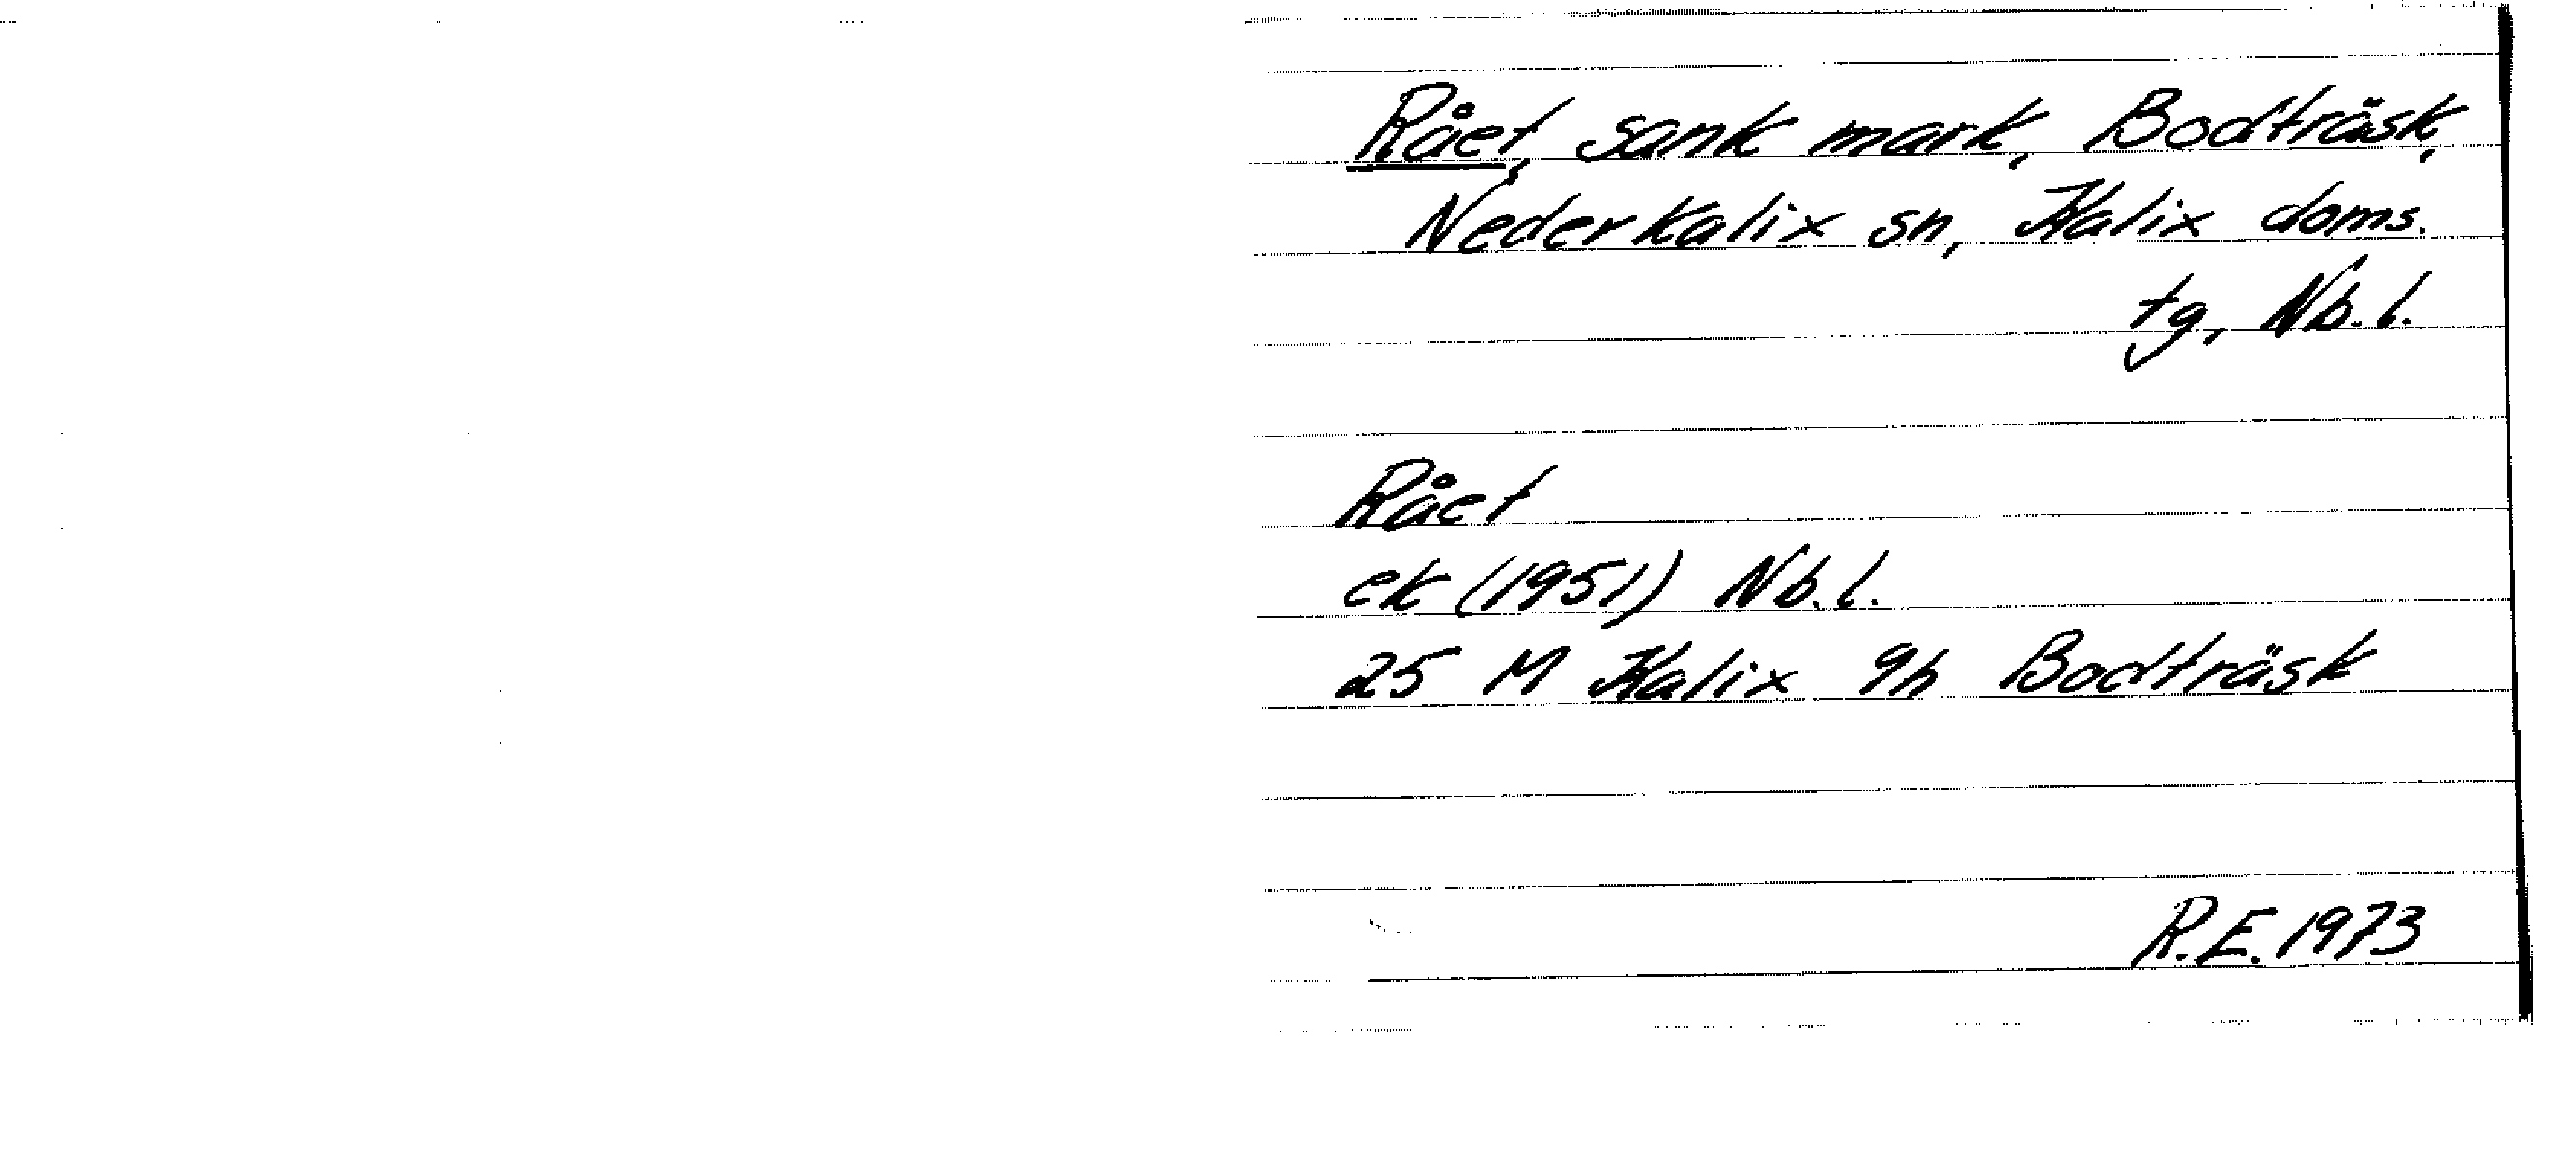 Rået, sank mark, Bodträsk,
Nederkalix sn, Kalix doms.
tg, Nb.l.
Rået
ek (1951) Nb.l.
25 M Kalix 9h Bodträsk
R.E. 1973